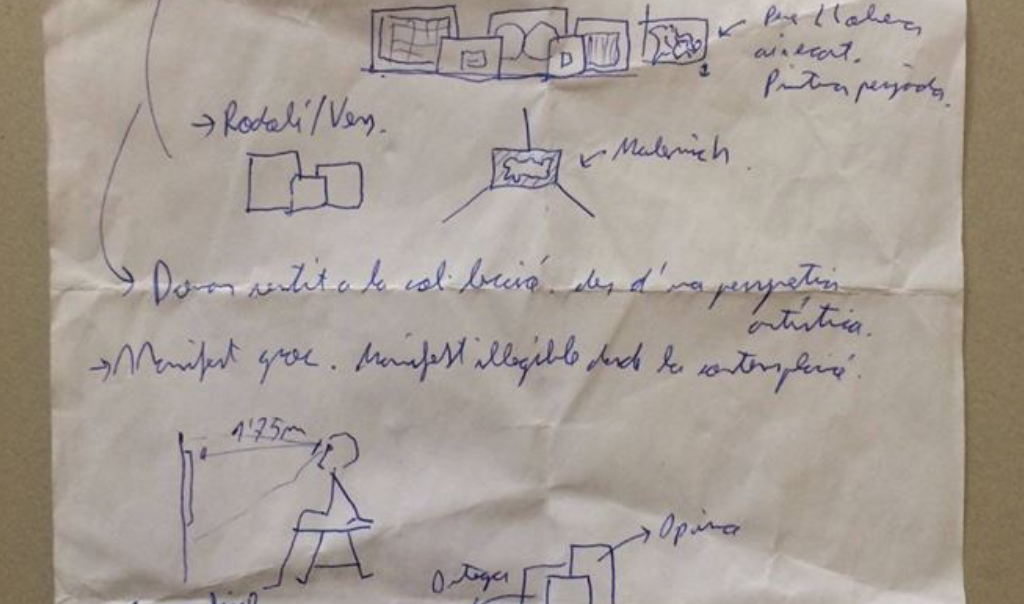 Pere Llobera
D
Pintura penjada.
→ Rodalí/Ven.
↙ Malevich
→ Donar sentit a la col·lecció. des d'una perspectiva
artística.
→ Manifest groc. Manifest illegible desde la contemplació.
1'75m
→ Opina
Ortega